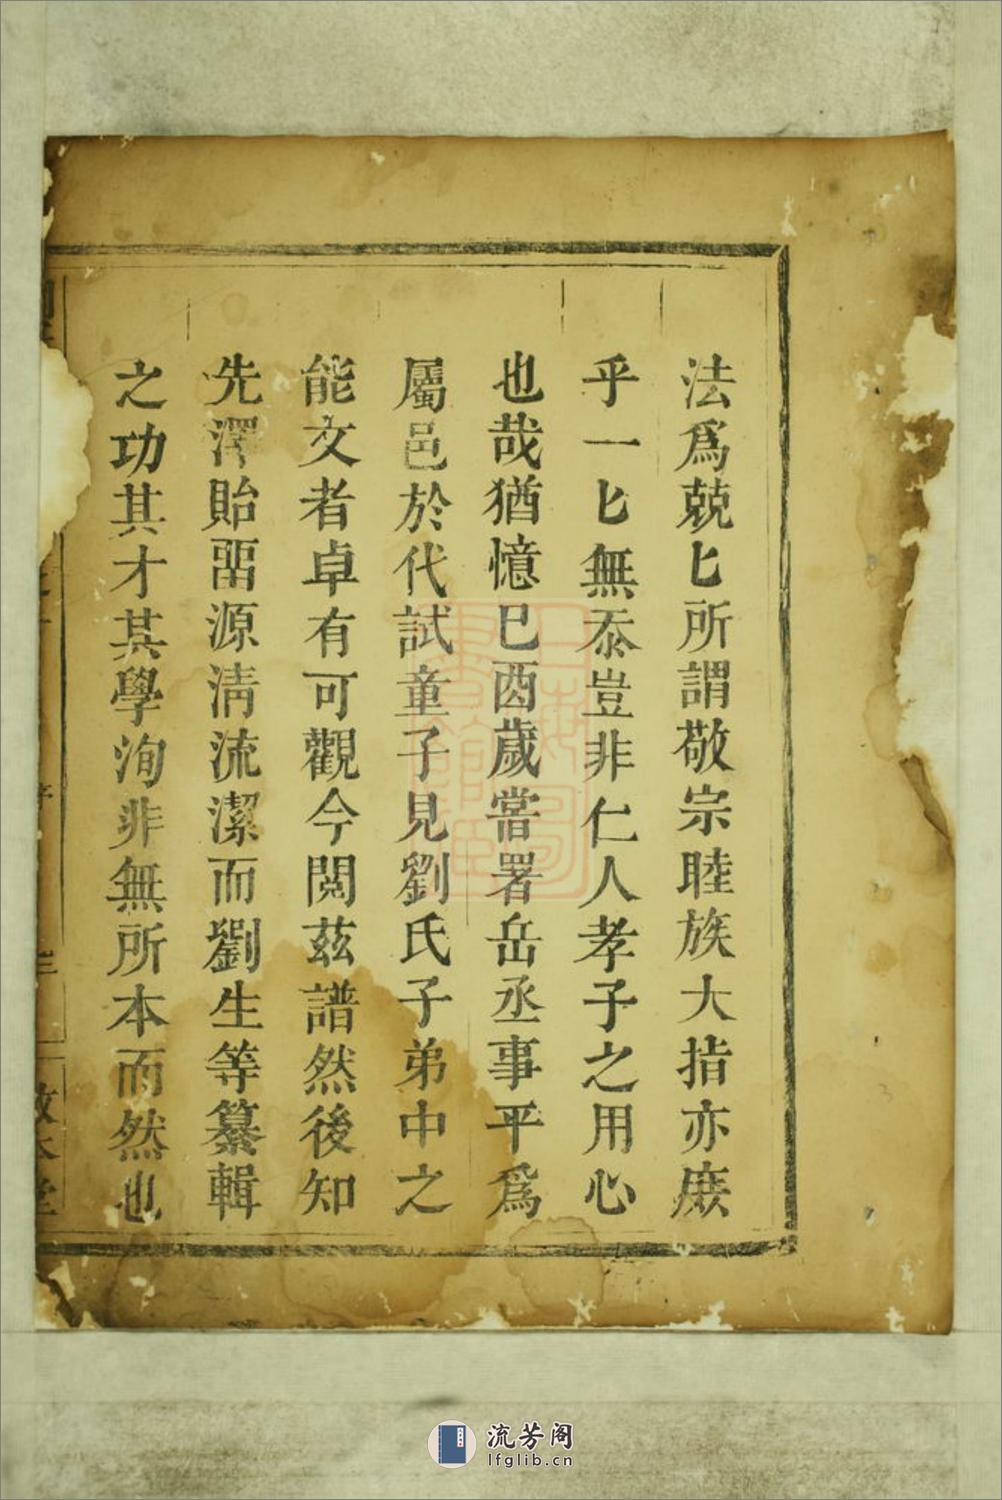 法爲兢匕所謂敬宗睦族大指亦庻
乎一匕無忝豈非仁人孝子之用心
也哉猶憶巳酉歲嘗署岳丞事平爲
屬邑於代試童子見劉氏子弟中之
能文者卓有可觀今閱茲譜然後知
先澤貽畱源淸流潔而劉生等纂輯
之功其才其學洵非無所本而然也
敦本堂
流芳阁
lfglib.cn